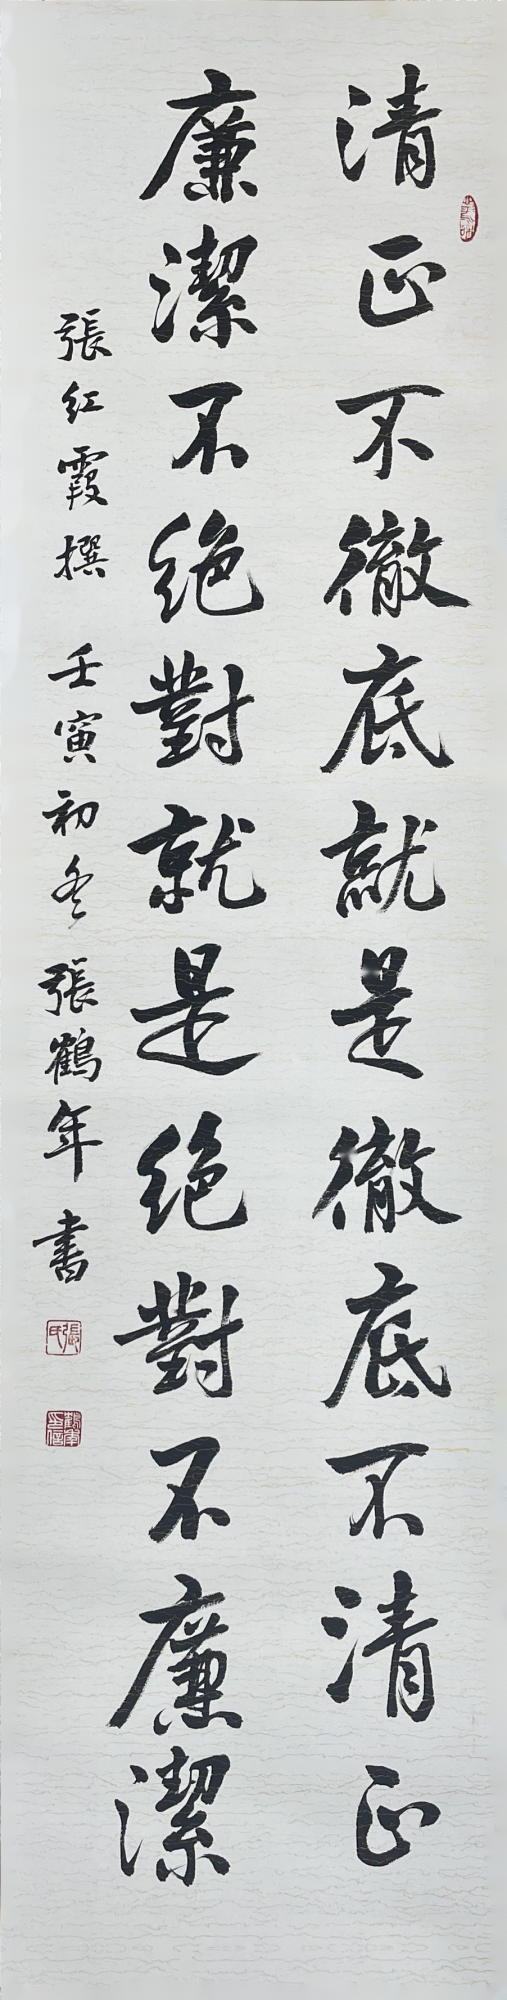 清正不徹底就是徹底不清正
廉潔不絕對就是絕對不廉潔
張紅霞撰 壬寅初冬 張鶴年書
張氏